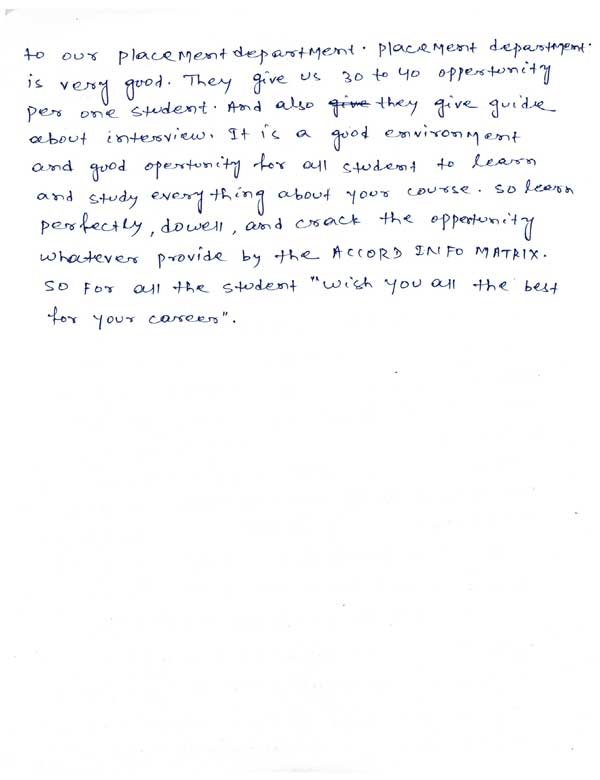 to our placement department. placement department.
is very good. They give us 30 to 40 oppertunity
per one student. And also give they give guide
about interview. It is a good environment
and good opertunity for all student to learn
and study everything about your course. so learn
perfectly, dowell, and crack the oppertunity
whatever provide by the ACCORD INFO MATRIX.
so For all the student "wish you all the best
for your career".